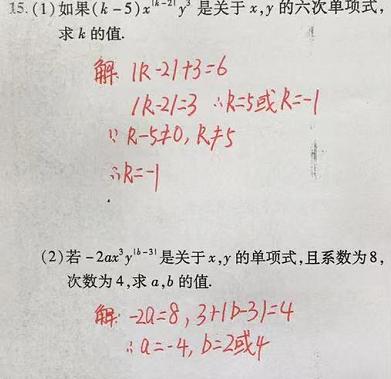 15. (1) 如果(k-5)x^|k-2|y³是关于x,y的六次单项式,
求k的值.
解: |k-2|+3=6
|k-2|=3 ∴k=5或k=-1
∵ k-5≠0, k≠5
∴k=-1
(2)若-2ax³y^|b-3|是关于x,y的单项式,且系数为8,
次数为4,求a,b的值.
解: -2a=8, 3+|b-3|=4
∴a=-4, b=2或4